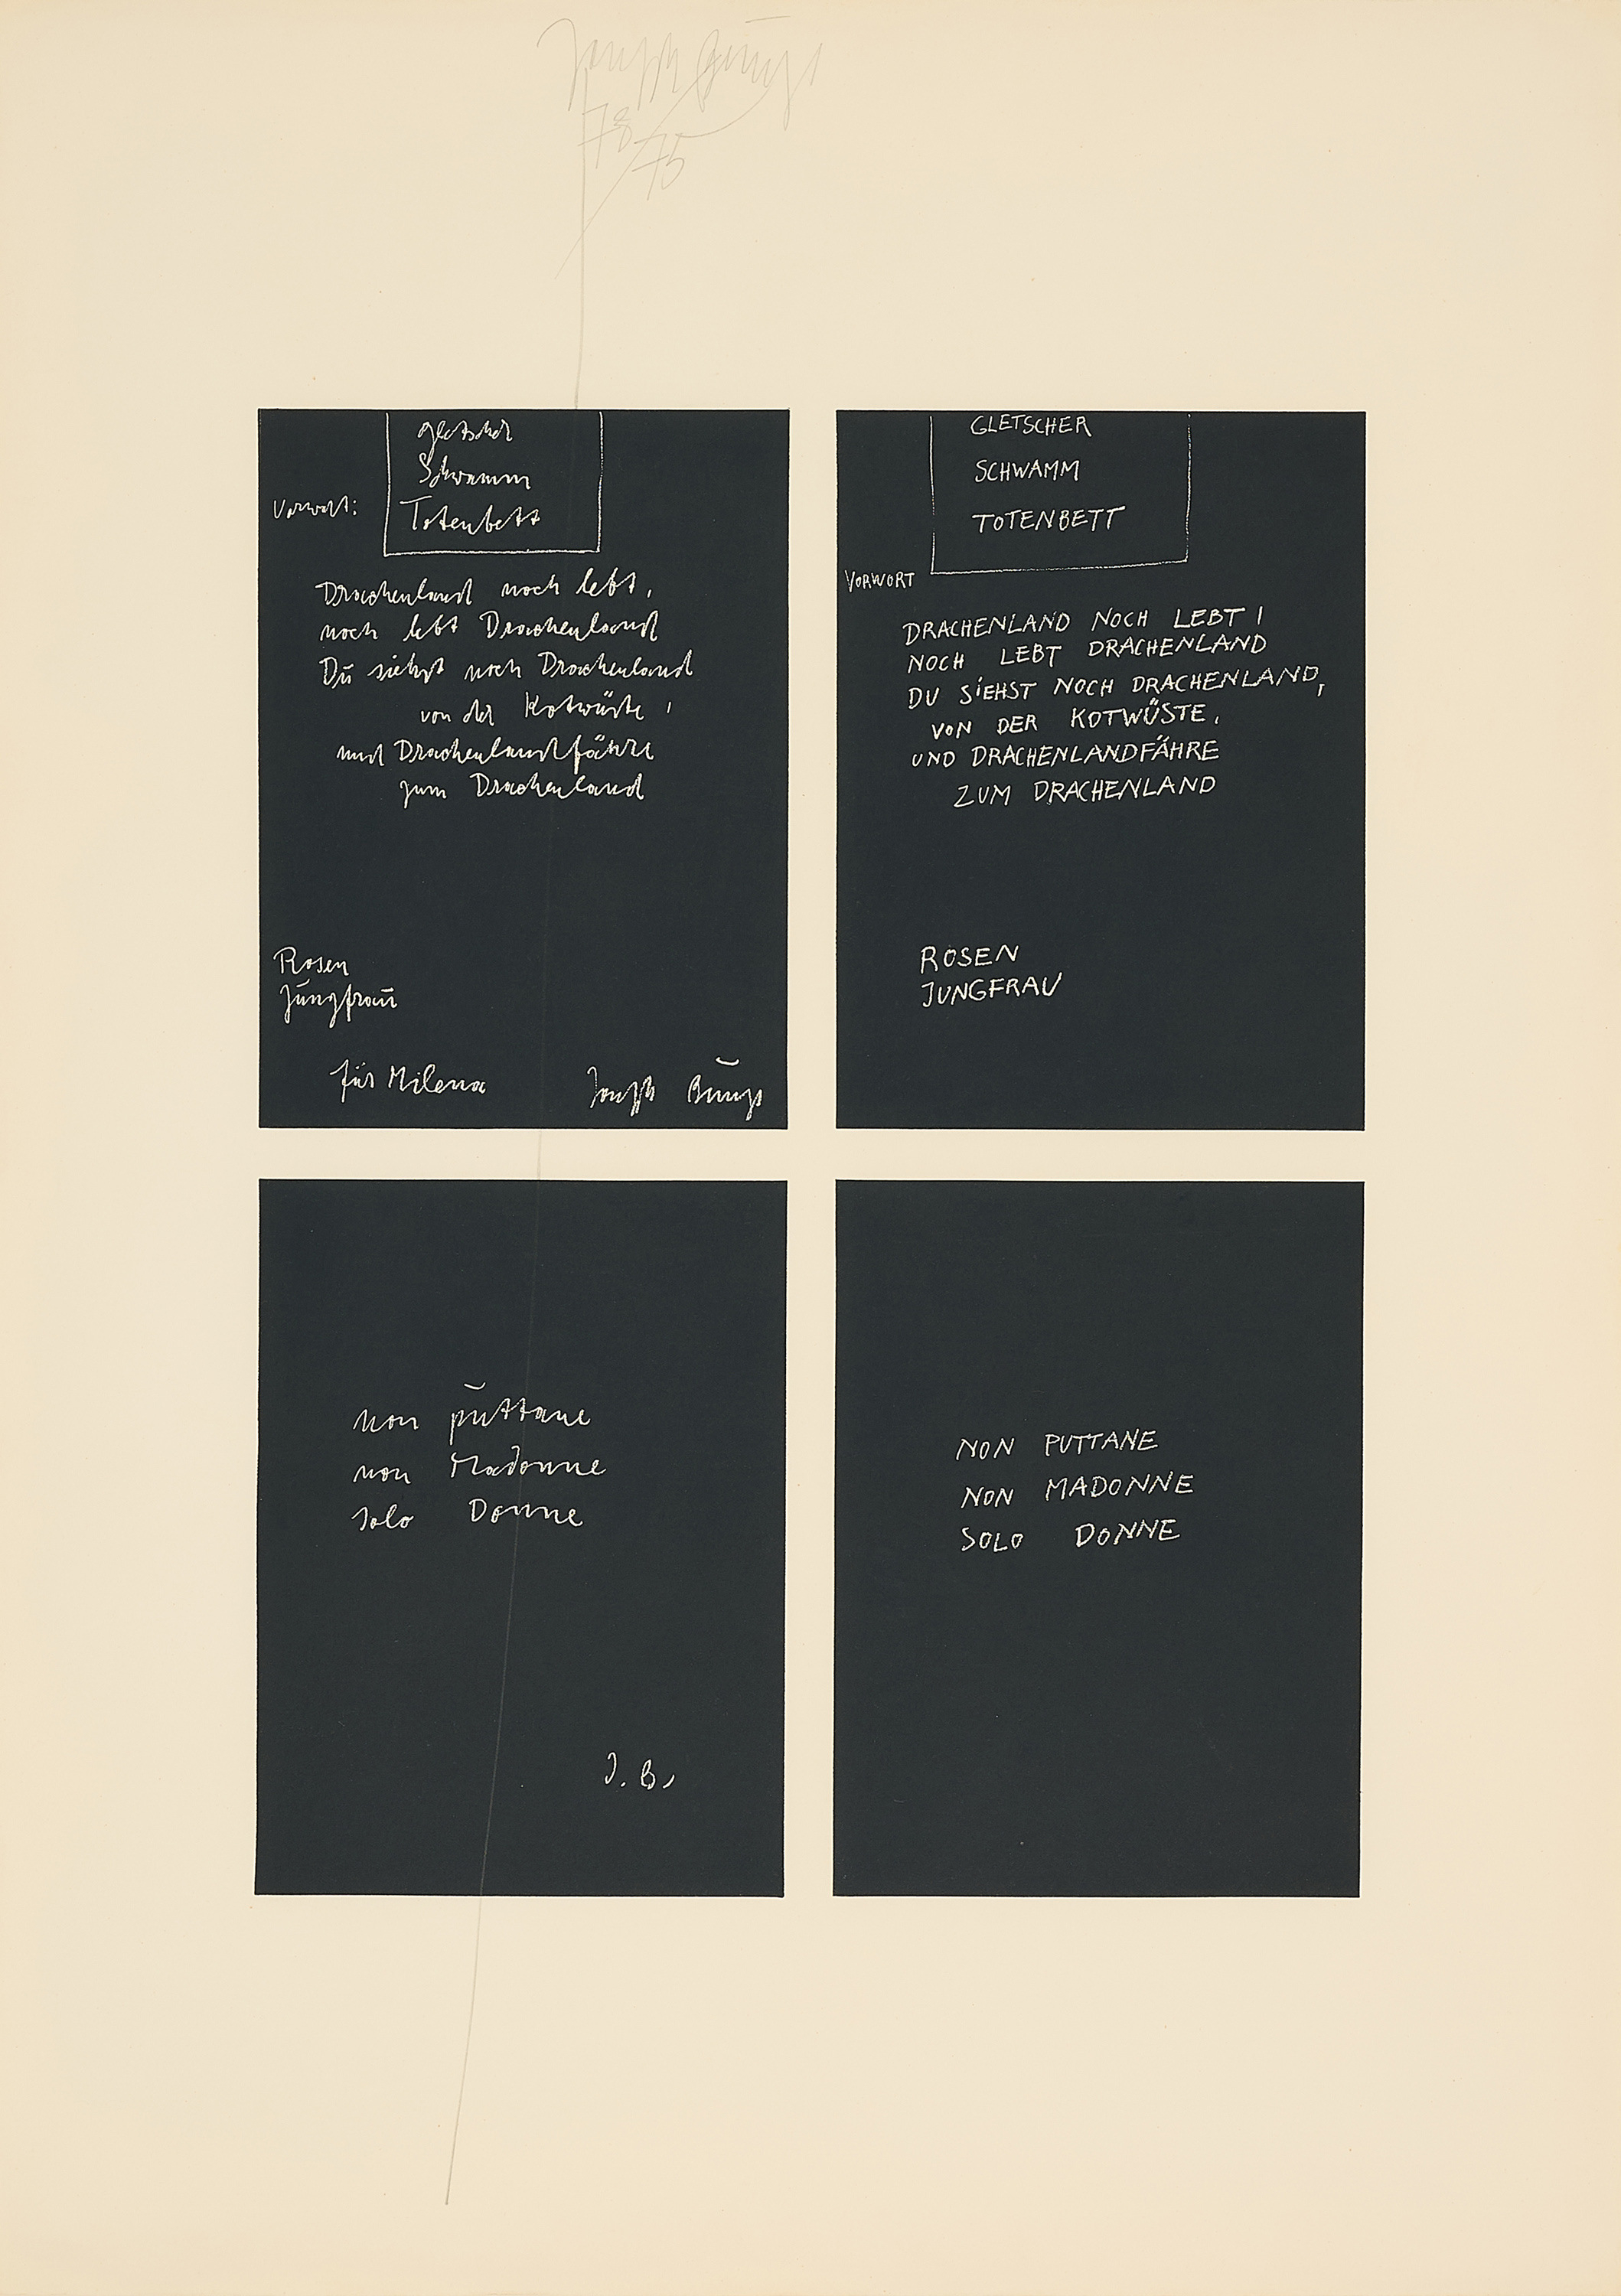 Joseph Beuys
78/75
Gletscher
Schwamm
Vorwort:
Totenbett
Drachenland noch lebt,
noch lebt Drachenland
Du siehst noch Drachenland
von der Kotwüste,
und Drachenlandfähre
zum Drachenland
Rosen
Jungfrau
für Milena
Joseph Beuys
GLETSCHER
SCHWAMM
TOTENBETT
VORWORT
DRACHENLAND NOCH LEBT!
NOCH LEBT DRACHENLAND
DU SIEHST NOCH DRACHENLAND,
VON DER KOTWÜSTE,
UND DRACHENLANDFÄHRE
ZUM DRACHENLAND
ROSEN
JUNGFRAU
non puttane
non Madonne
solo Donne
J. B.
NON PUTTANE
NON MADONNE
SOLO DONNE